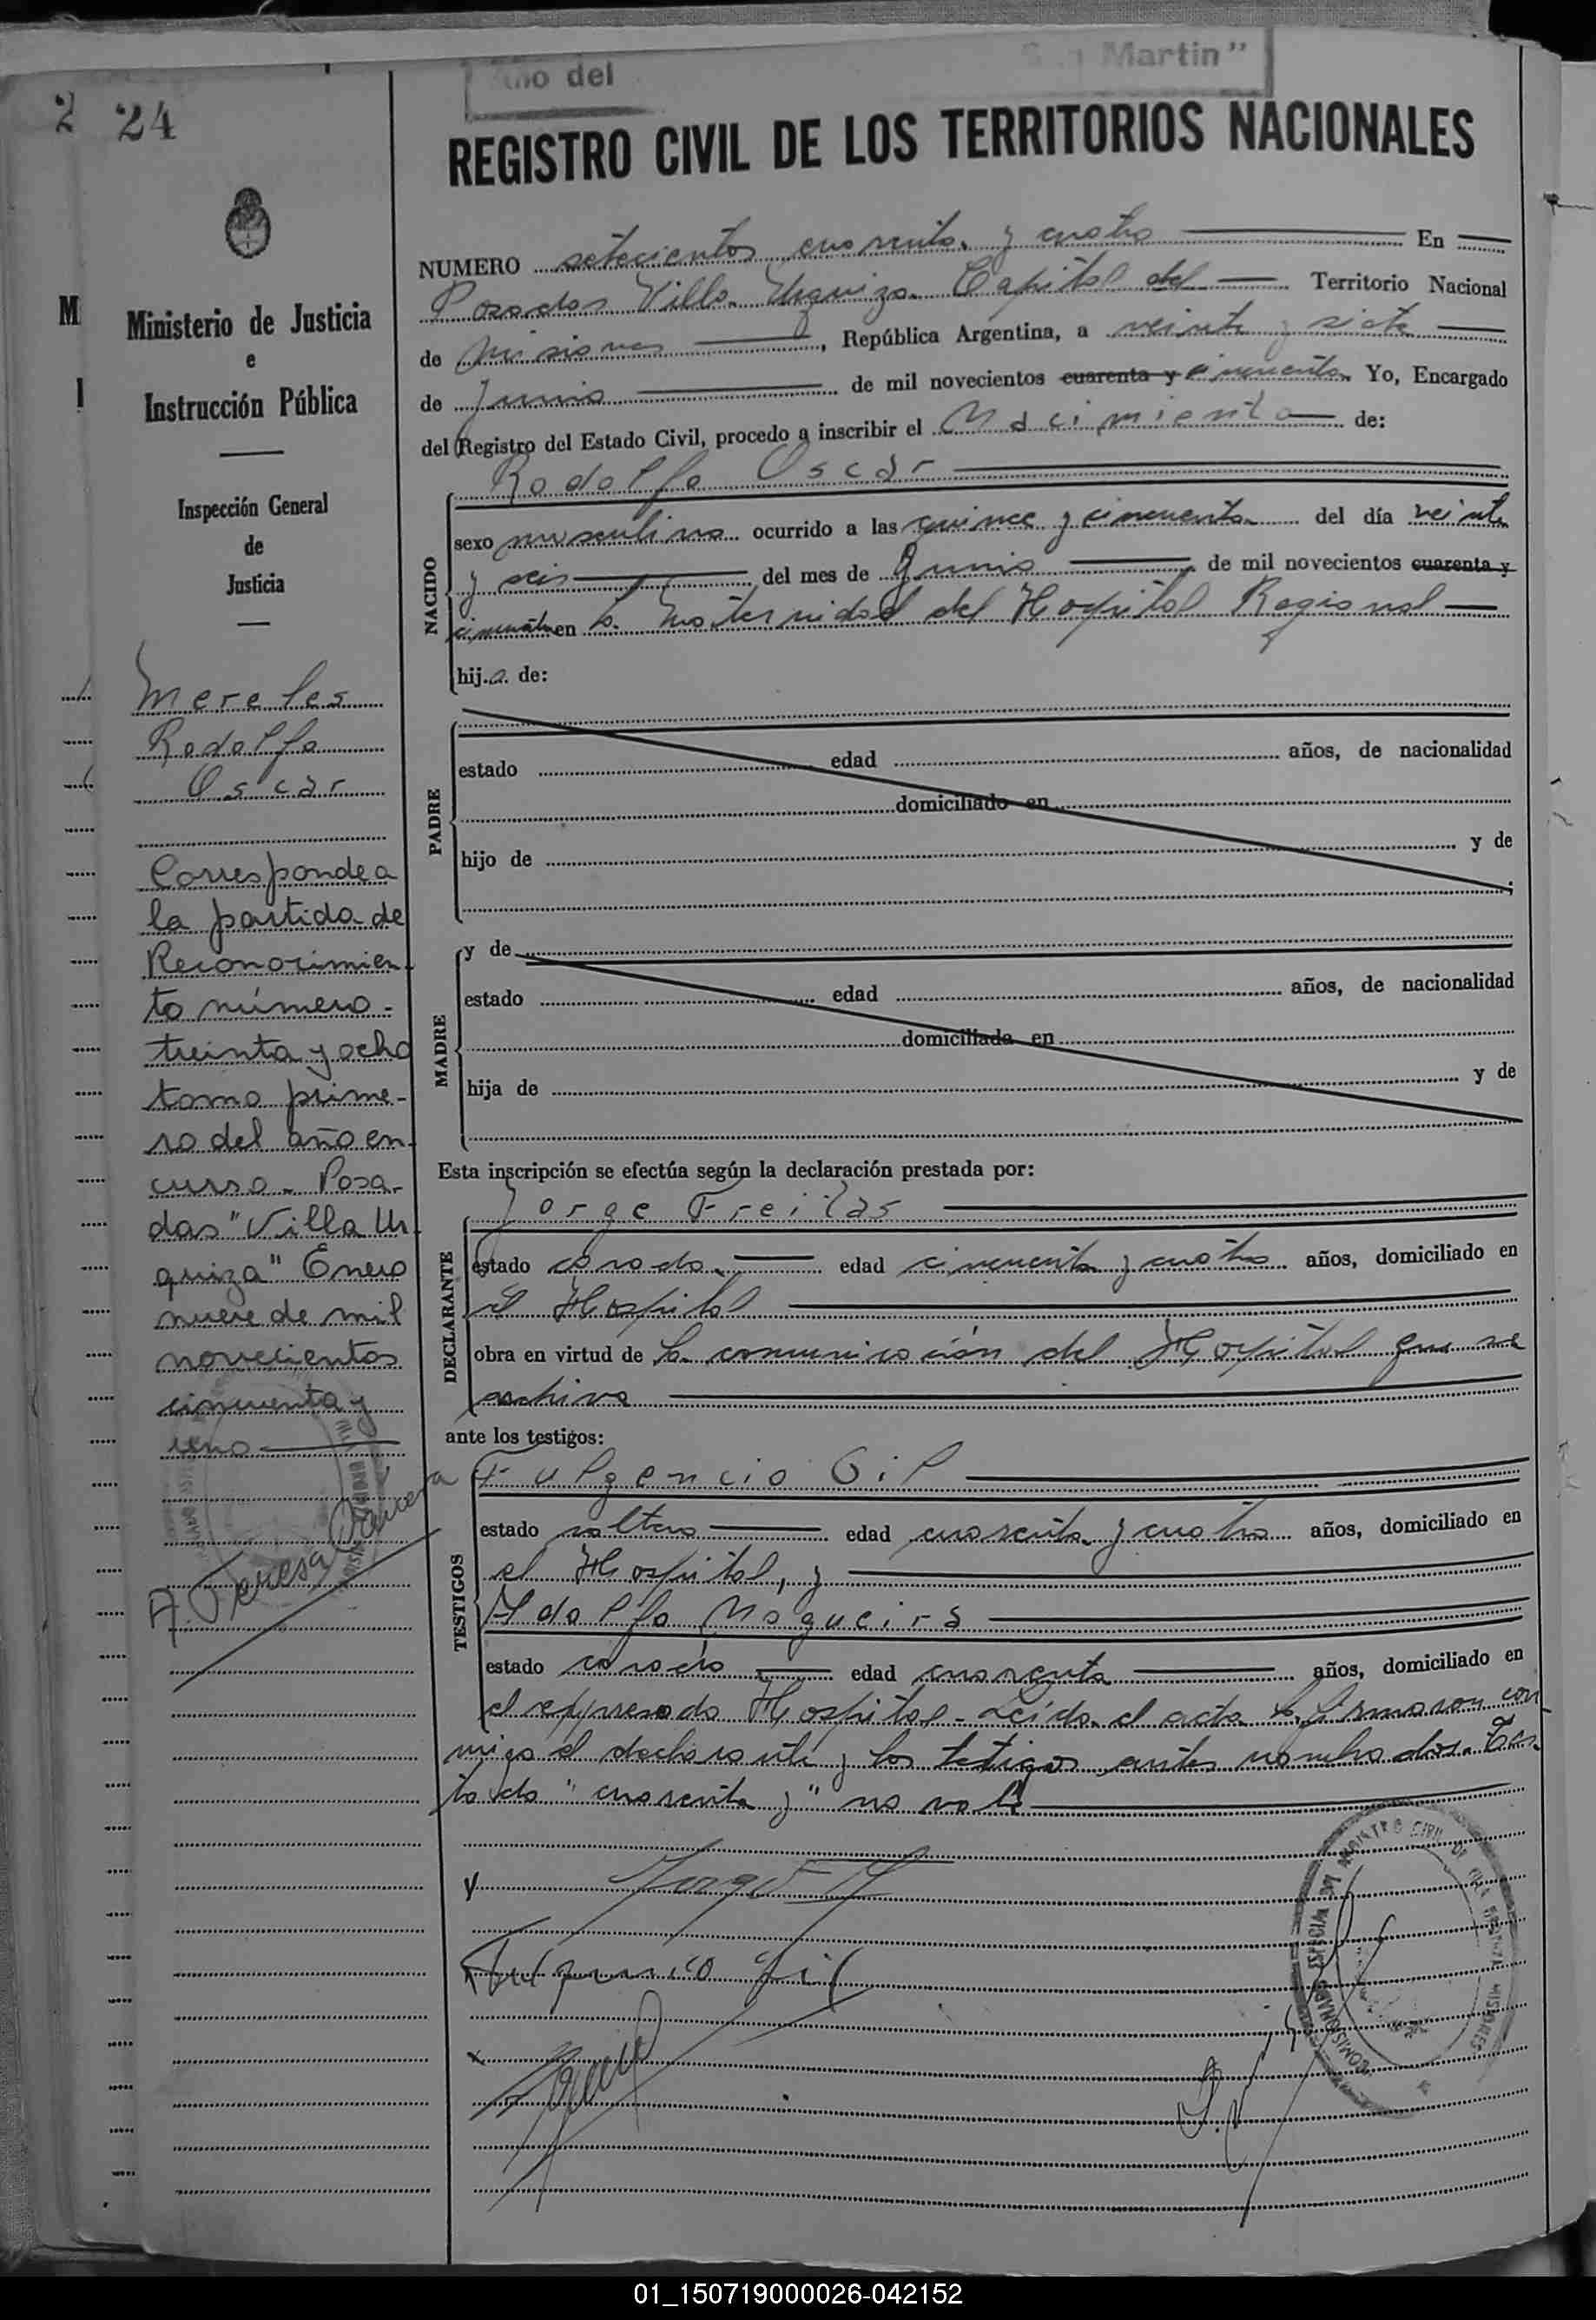 Año del
Martin"
2 24
REGISTRO CIVIL DE LOS TERRITORIOS NACIONALES
NUMERO setecientos cuarenta y cuatro En
Posadas Villa Urquiza Capital del Territorio Nacional
de Misiones, República Argentina, a veinte y siete
de Junio de mil novecientos cuarenta y cincuenta Yo, Encargado
del Registro del Estado Civil, procedo a inscribir el Nacimiento de:
Rodolfo Oscar
NACIDO
sexo masculino ocurrido a las quince y cincuenta del día veinte
y seis del mes de Junio de mil novecientos cuarenta y
cincuenta en la Maternidad del Hospital Regional
hijo de:
PADRE
estado edad años, de nacionalidad
domiciliado en
hijo de y de
MADRE
y de
estado edad años, de nacionalidad
domiciliada en
hija de y de
Esta inscripción se efectúa según la declaración prestada por:
DECLARANTE
Jorge Freitas
estado casado edad cincuenta y cuatro años, domiciliado en
el Hospital
obra en virtud de la comunicación del Hospital que se
archiva
ante los testigos:
TESTIGOS
Fulgencio Gil
estado soltero edad cuarenta y cuatro años, domiciliado en
el Hospital, y
Adolfo Nogueira
estado casado edad cuarenta años, domiciliado en
el expresado Hospital - Leída el acta la firmaron con
migo el declarante y los testigos antes nombrados. Tes
tado "cuarenta y" no vale
Fulgencio Gil
M
Ministerio de Justicia
e
Instrucción Pública
Inspección General
de
Justicia
Mereles
Rodolfo
Oscar
Corresponde a
la partida de
Reconocimien-
to número
treinta y ocho
tomo prime-
ro del año en
curso - Posa-
das "Villa Ur
quiza" Enero
nueve de mil
novecientos
cincuenta y
uno
A. Teresa
REGISTRO CIVIL DE
MISIONES
01_150719000026-042152